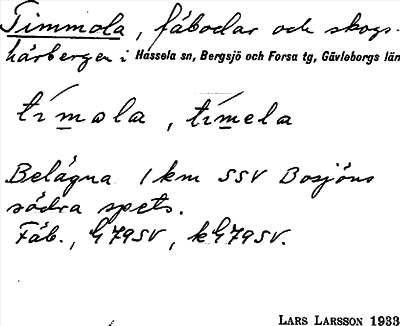 Timmola, fäbodar och skogs-
härbergen i Hassela sn, Bergsjö och Forsa tg, Gävleborgs län
tímola, tímela
Belägna 1 km SSV Bosjöns
södra spets.
Fäb., G79SV, kG79SV.
LARS LARSSON 1933